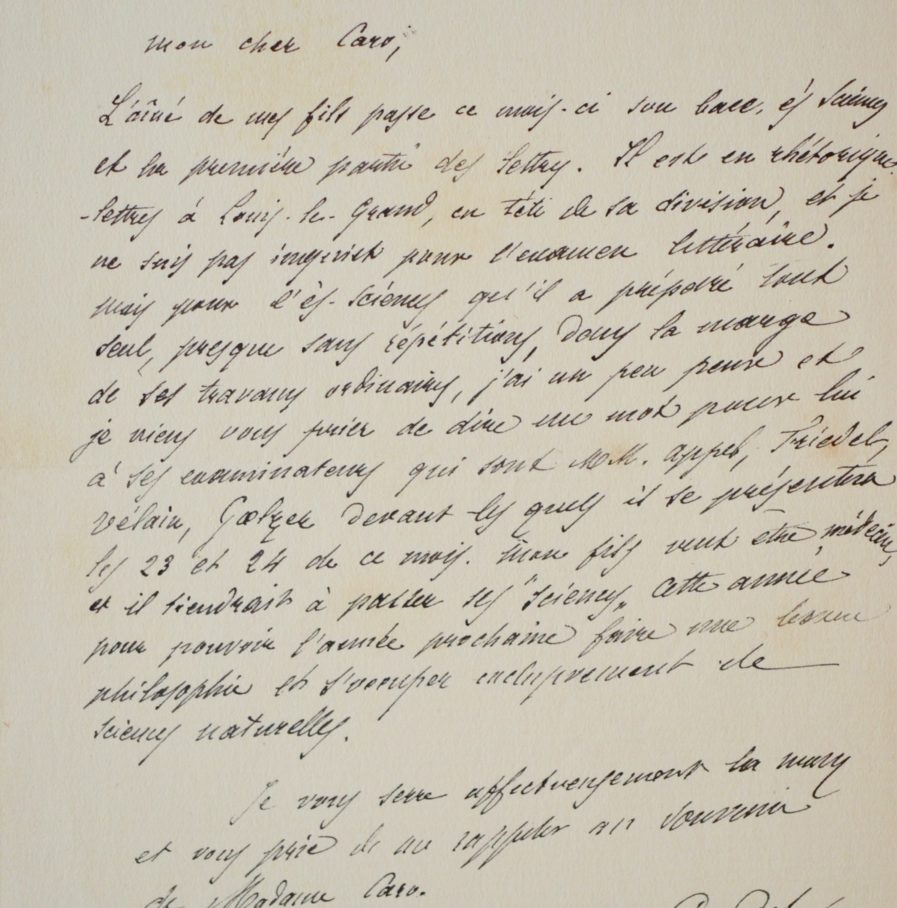 Mon cher Caro,
L'aîné de mes fils passe ce mois-ci son bacc. ès Sciences
et la première partie des lettres. Il est en rhétorique
-lettres à Louis-le-Grand, en tête de sa division, et je
ne suis pas inquiet pour l'examen littéraire.
Mais pour l'ès-Sciences qu'il a préparé tout
seul, presque sans répétitions, dans la marge
de ses travaux ordinaires, j'ai un peu peur et
je viens vous prier de dire un mot pour lui
à ses examinateurs qui sont MM. Appel, Friedel,
Vélain, Gœlzer devant lesquels il se présentera
les 23 et 24 de ce mois. Mon fils veut être médecin,
et il tiendrait à passer ses "Sciences" cette année
pour pouvoir l'année prochaine faire une bonne
philosophie et s'occuper exclusivement de
Sciences naturelles.
Je vous serre affectueusement la main
et vous prie de me rappeler au souvenir
de Madame Caro.